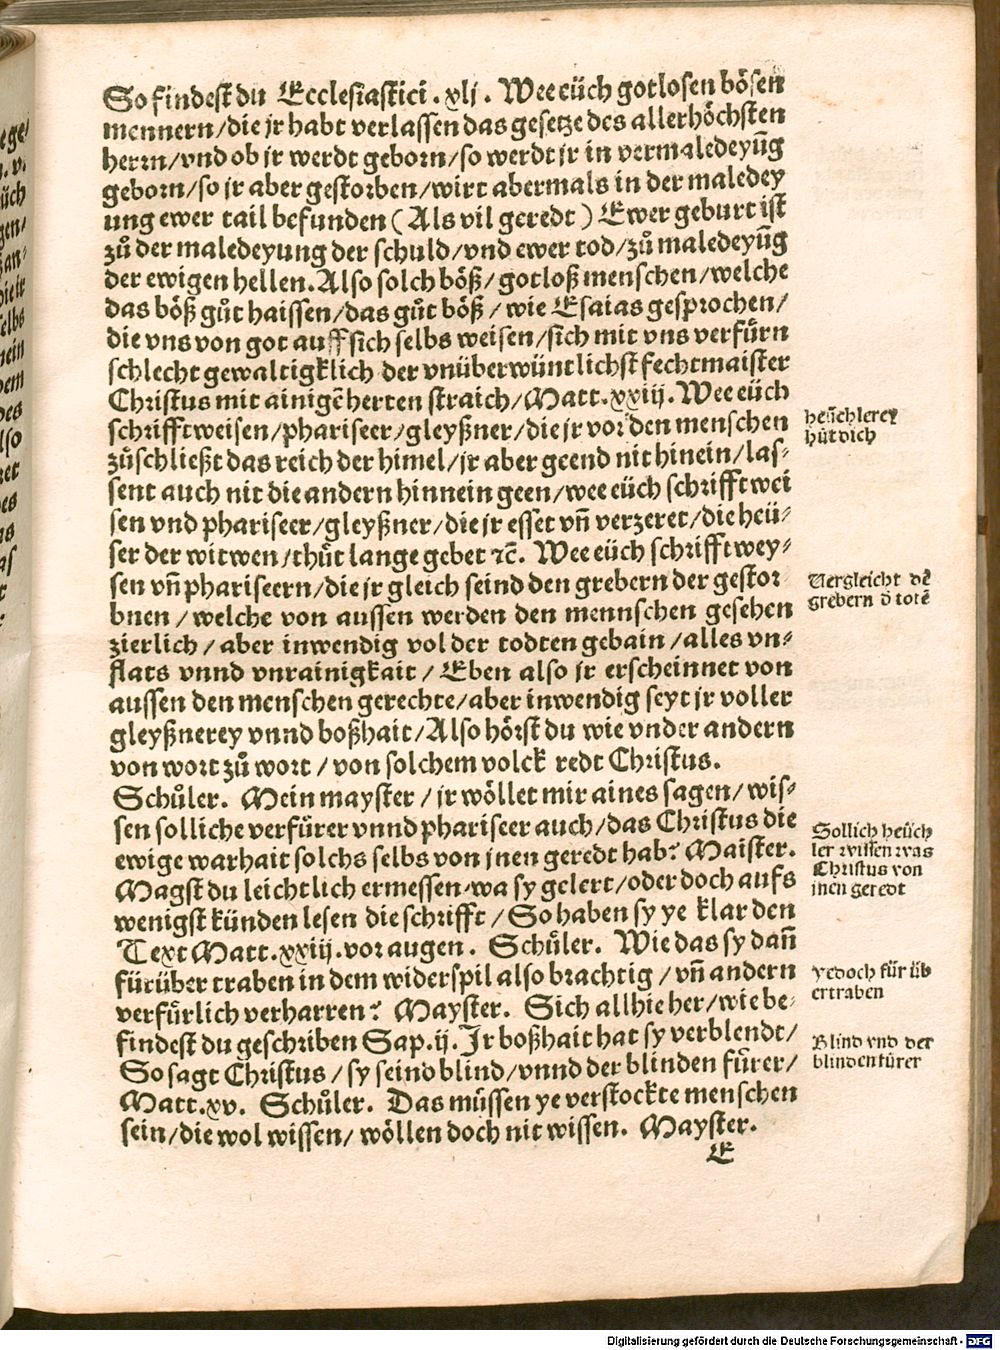 So findest du Ecclesiastici . xlj . Wee eüch gotlosen bösen
mennern/die jr habt verlassen das gesetze des allerhöchsten
herrn/vnd ob jr werdt geborn/so werdt jr in vermaledeyūg
geborn/so jr aber gestorben/wirt abermals in der maledey
ung ewer tail befunden ( Als vil geredt ) Ewer geburt ist
zů der maledeyung der schuld/vnd ewer tod/zů maledeyūg
der ewigen hellen. Also solch böß/ gotloß menschen/welche
das böß gůt haissen/das gůt böß / wie Esaias gesprochen/
die vns von got auff sich selbs weisen/sich mit vns verfürn
schlecht gewaltigklich der vnüberwüntlichst fechtmaister
Christus mit ainigē herten straich/Matt.xxiij. Wee eüch
schrifftweisen/phariseer/gleyßner/die jr vor den menschen
zůschließt das reich der himel/jr aber geend nit hinein/las-
sent auch nit die andern hinnein geen/wee eüch schrifft wei
sen vnd phariseer/gleyßner/die jr esset vn̄ verzeret/die heü-
ser der witwen/thüt lange gebet ⁊c̄. Wee eüch schrifft wey-
sen vn̄ phariseern/die jr gleich seind den grebern der gestor
bnen / welche von aussen werden den mennschen gesehen
zierlich / aber inwendig vol der todten gebain /alles vn-
flats vnnd vnrainigkait / Eben also jr erscheinnet von
aussen den menschen gerechte/aber inwendig seyt jr voller
gleyßnerey vnnd boßhait/Also hörst du wie vnder andern
von wort zů wort / von solchem volck redt Christus.
Schůler. Mein mayster / jr wöllet mir aines sagen/ wis-
sen solliche verfürer vnnd phariseer auch/das Christus die
ewige warhait solchs selbs von jnen geredt hab? Maister.
Magst du leichtlich ermessen/wa sy gelert/oder doch aufs
wenigst künden lesen die schrifft / So haben sy ye klar den
Text Matt.xxiij.vor augen. Schůler. Wie das sy dan̄
fürüber traben in dem widerspil also brachtig / vn̄ andern
verfürlich verharren? Mayster. Sich allhie her/wie be-
findest du geschriben Sap.ij. Jr boßhait hat sy verblendt/
So sagt Christus / sy seind blind/vnnd der blinden fürer/
Matt.xv. Schůler. Das müssen ye verstockte menschen
sein/die wol wissen/ wöllen doch nit wissen. Mayster.
E
heüchlerey
hüt dich
Vergleicht dē
grebern d̄ totē
Sollich heüch
ler wissen was
Christus von
jnen geredt
yedoch für üb
ertraben
Blind vnd der
blinden fürer
Digitalisierung gefördert durch die Deutsche Forschungsgemeinschaft - DFG